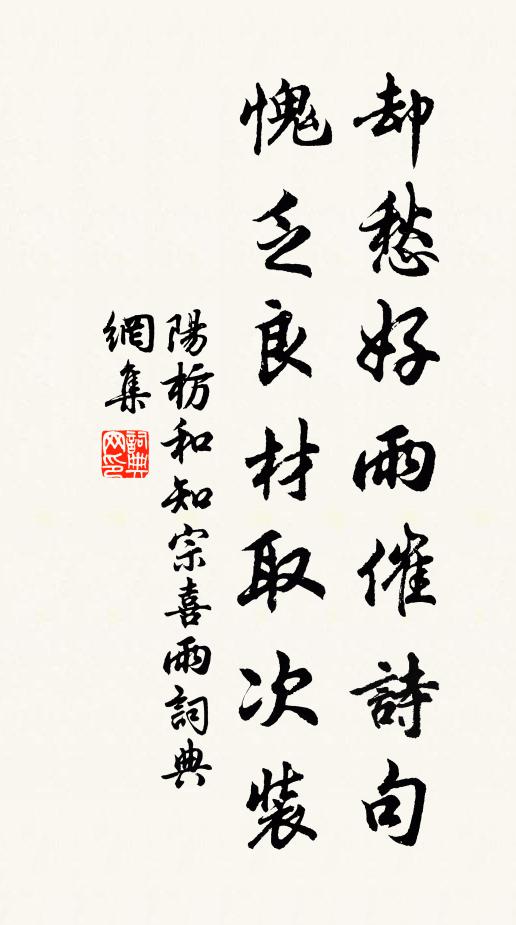 却愁好雨催詩句
愧乏良材取次裝
陽枋和知宗喜雨詞典
網集
詞典
网印